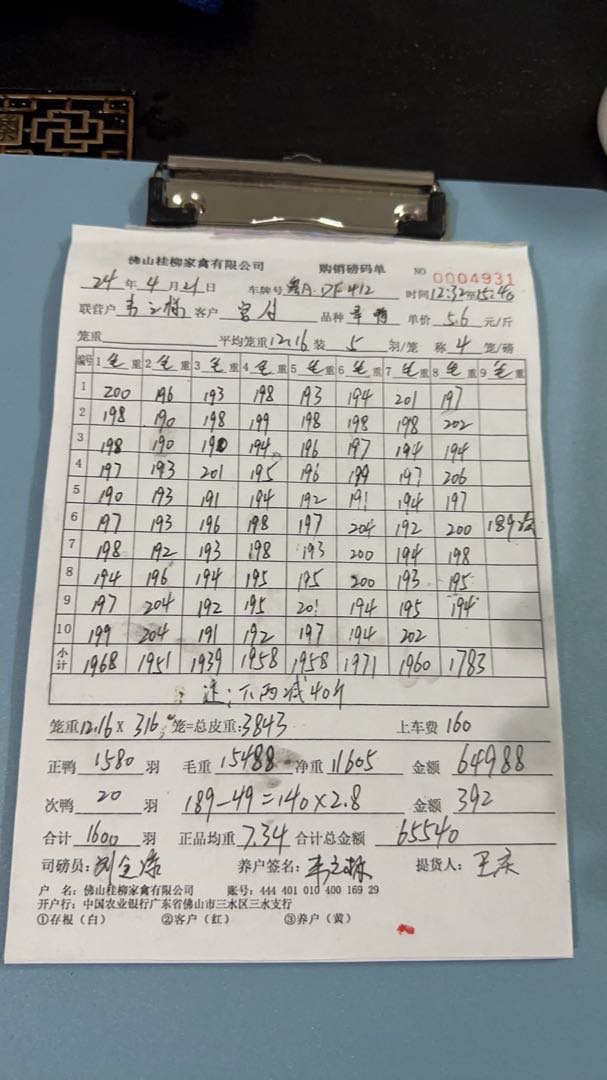 佛山桂柳家禽有限公司 购销磅码单 NO 0004931
24年4月21日 车牌号 A·DF412 时间12:32至15:40
联营户 客户 品种 单价 5.6 元/斤
笼重 平均笼重12.16装 5 羽/笼 称 4 笼/磅
编号 1毛重 2毛重 3毛重 4毛重 5毛重 6毛重 7毛重 8毛重 9毛重
1 200 196 193 198 193 194 201 197
2 198 190 198 199 198 198 198 202
3 198 190 190 194 196 197 194 194
4 197 193 201 195 196 199 197 206
5 190 193 191 194 192 191 194 197
6 197 193 196 198 197 204 192 200 189
7 198 192 193 198 193 200 194 198
8 194 196 194 195 195 200 193 195
9 197 204 192 195 201 194 195 194
10 199 204 191 192 197 194 202
小计 1968 1951 1939 1958 1958 1971 1960 1783
注:下雨减40斤
笼重12.16 X 316 笼=总皮重:3843 上车费 160
正鸭 1580 羽 毛重 15488 净重 11605 金额 64988
次鸭 20 羽 189-49=140×2.8 金额 392
合计 1600 羽 正品均重 7.34 合计总金额 65540
司磅员: 养户签名: 提货人:
户 名:佛山桂柳家禽有限公司 账号:444 401 010 400 169 29
开户行:中国农业银行广东省佛山市三水区三水支行
①存根(白) ②客户(红) ③养户(黄)